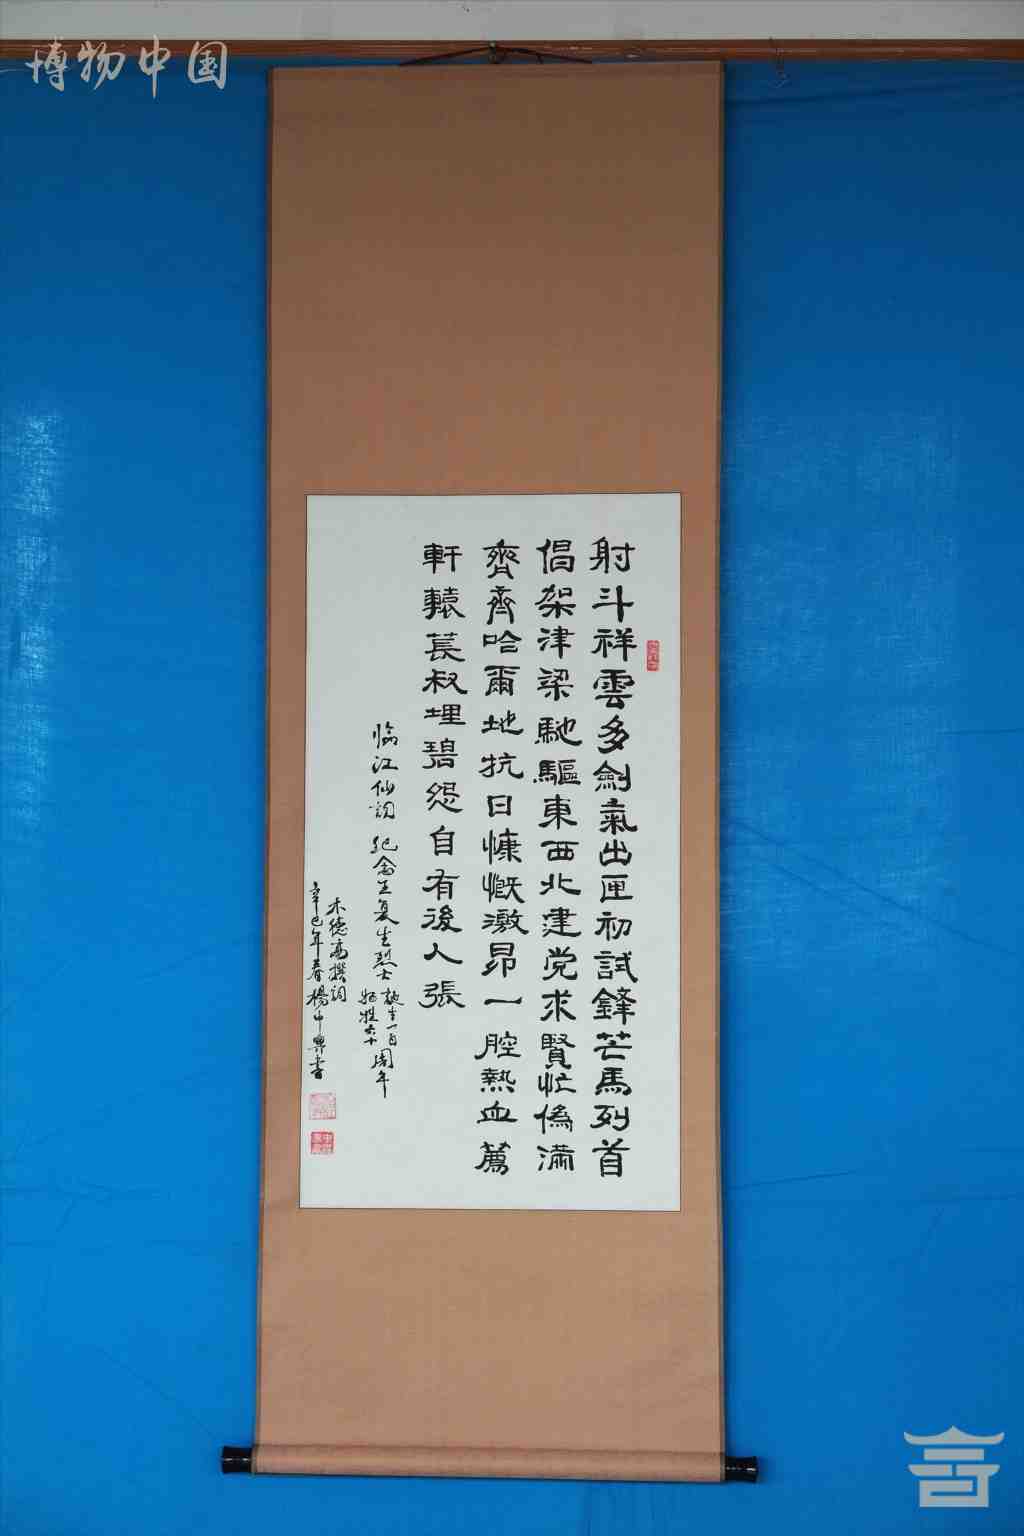 博物中国
射斗祥雲多劍氣出匣初試鋒芒馬列首
倡架津梁馳驅東西北建党求賢忙偽滿
齊齊哈爾地抗日慷慨激昂一腔熱血薦
軒轅萇叔埋碧怨自有後人張
臨江仙詞 紀念王復生烈士誕生一百犧牲六十周年
木德高撰詞
辛巳年春楊中興書